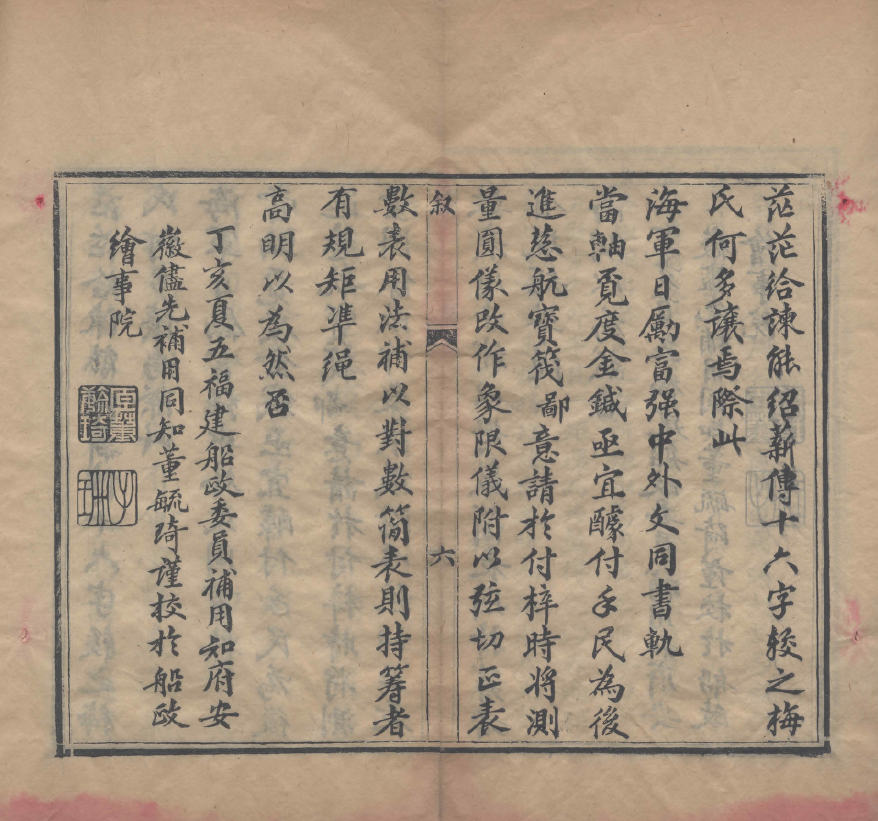 茫茫給諫能紹薪傳十六字較之梅
氏何多讓焉際此
海軍日勵富强中外文同書軌
當軸覔度金鍼亟宜醵付手民為後
進慈航寶筏鄙意請於付梓時將測
量圓儀改作象限儀附以弦切正表
叙
六
數表用法補以對數简表則持籌者
有規矩準绳
高明以為然否
丁亥夏五福建船政委員補用知府安
徽儘先補用同知董毓琦謹校於船政
繪事院
臣董毓琦
子珊